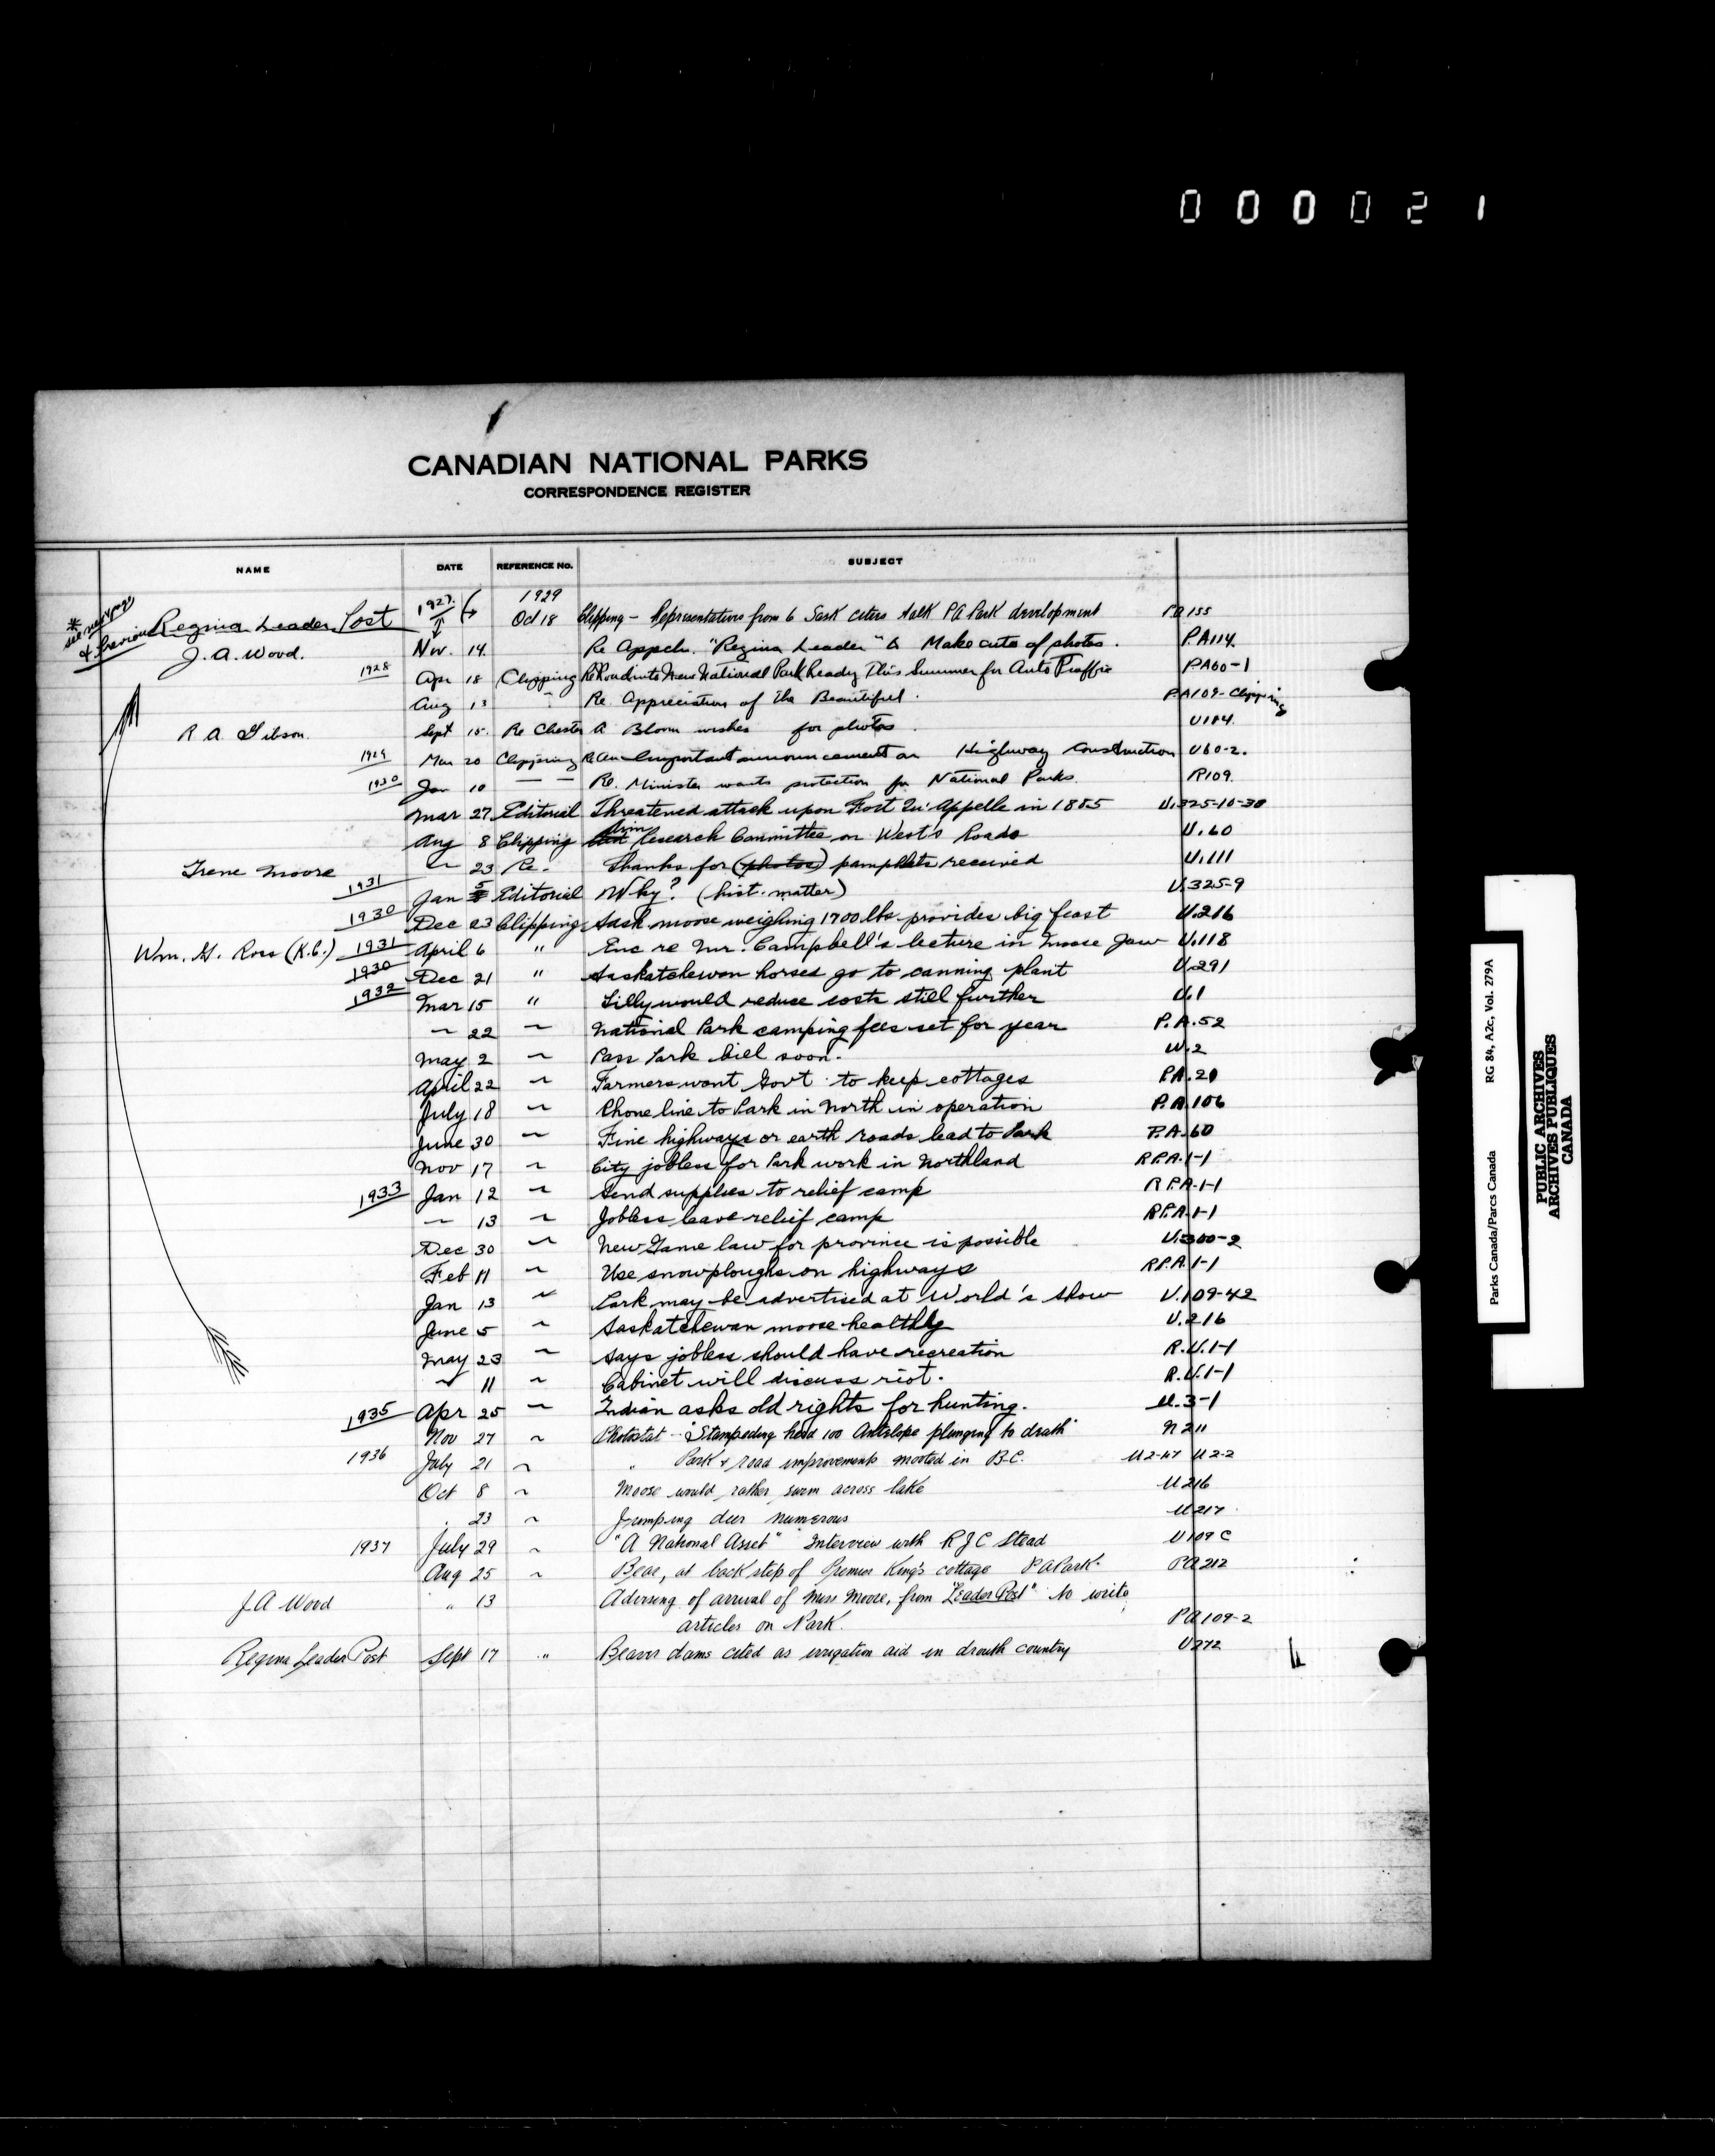 000021
CANADIAN NATIONAL PARKS
CORRESPONDENCE REGISTER
NAME DATE REFERENCE No. SUBJECT
* see next page
& Previous Regina Leader Post 1927. 1929 Oct 18 Clipping - Representatives from 6 Sask cities talk PA Park development PA 155
J. A. Wood. Nov. 14. Re Appeln. "Regina Leader" to Make cuts of photos. P.A114.
1928 Apr 18 Clipping Re Road into New National Park Ready This Summer for Auto Traffic P.A60-1
Aug 13 " Re Appreciation of the Beautiful. P.A109-Clipping
R A. Gibson. Sept 15. Re Chester A Bloom wishes for photos. U184.
1929 Mar 20 Clipping Re An Important announcement on Highway Construction U60-2.
1930 Jan 10 — — Re. Minister wants protection for National Parks. R109.
Mar 27 Editorial Threatened attack upon Fort Qu'Appelle in 1885 U.325-10-30
Aug 8 Clipping Research Committee on West's Roads U.60
Irene Moore ~ 23 Re. Thanks for (photos) pamphlets received U.111
1931 Jan 5 Editorial Why? (hist. matter) U.325-9
1930 Dec 23 Clipping Sask. moose weighing 1700 lbs. provides big feast U.216
Wm. G. Ross (K.C.) 1931 April 6 " Enc re Mr. Campbell's lecture in Moose Jaw U.118
1930 Dec 21 " Saskatchewan horses go to canning plant U.291
1932 Mar 15 " Lilly would reduce costs still further U.1
~ 22 ~ National Park camping fees set for year P.A.52
May 2 ~ Pass Park bill soon. U.2
April 22 ~ Farmers want Gov't to keep cottages P.A.20
July 18 ~ Phone line to Park in North in operation P.A.106
June 30 ~ Fine highways or earth roads lead to Park P.A.60
Nov 17 ~ City jobless for Park work in Northland R.P.A.1-1
1933 Jan 12 ~ Send supplies to relief camp R P.A-1-1
~ 13 ~ Jobless leave relief camp R.P.A.1-1
Dec 30 ~ New Game law for province is possible U.300-2
Feb 11 ~ Use snowploughs on highways R.P.A.1-1
Jan 13 ~ Park may be advertised at World's show U.109-42
June 5 ~ Saskatchewan moose healthy U.216
May 23 ~ Says jobless should have recreation R.U.1-1
~ 11 ~ Cabinet will discuss riot. R.U.1-1
1935 Apr 25 ~ Indian asks old rights for hunting. U.3-1
Nov 27 ~ Photostat "Stampeding herd 100 Antelope plunging to death" N 211
1936 July 21 ~ " Park & road improvements mooted in B.C. U2-47 U2-2
Oct 8 ~ Moose would rather swim across lake U216
" 23 ~ Jumping deer numerous U217
1937 July 29 ~ "A National Asset" Interview with R J C Stead U109 C
Aug 25 ~ Bear, at back step of Premier King's cottage P A Park. PA212
J. A Wood " 13 Advising of arrival of Miss Moore, from "Leader Post" to write
articles on N Park. PA109-2
Regina Leader Post Sept 17 " Beaver dams cited as irrigation aid in drouth country U272
Parks Canada/Parcs Canada RG 84, A2c, Vol. 279A
PUBLIC ARCHIVES
ARCHIVES PUBLIQUES
CANADA